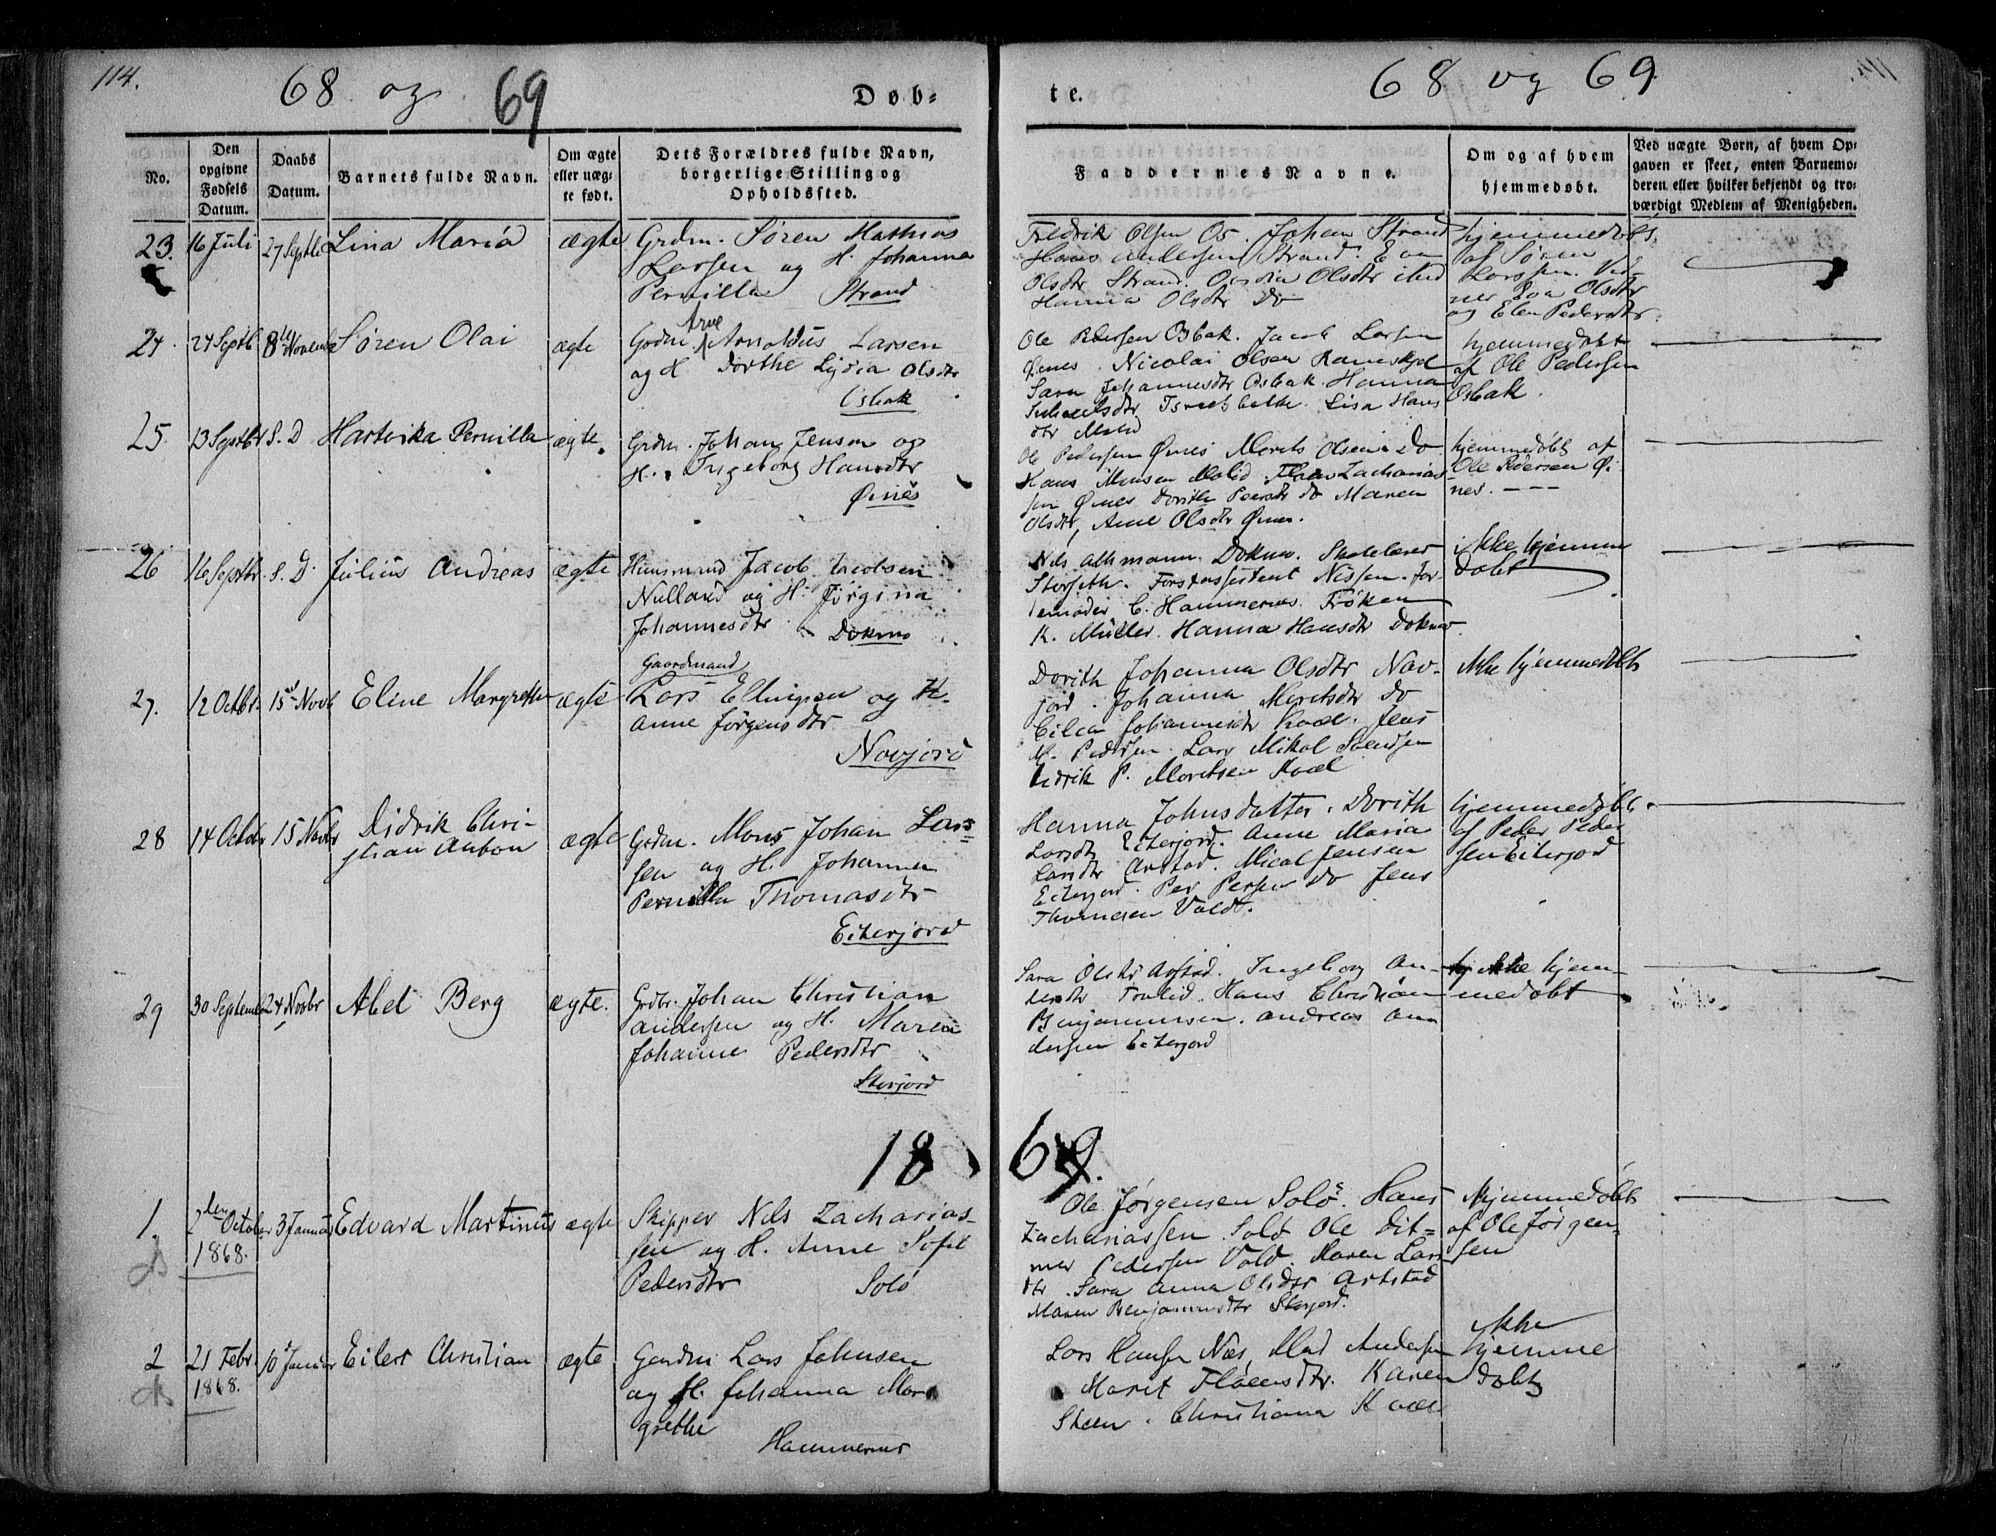 114.
68 og 69
Døb-
te.
68 og 69
No.
Den
opgivne
Fødsels
Datum.
Daabs
Datum.
Barnets fulde Navn.
Om ægte
eller uæg-
te født.
Dets Forældres fulde Navn,
borgerlige Stilling og
Opholdssted.
Faddernes Navne.
Om og af hvem
hjemmedøbt.
Ved uægte Børn, af hvem Op-
gaven er skeet, enten Barnemo-
deren eller hvilket bekjendt og tro-
værdigt Medlem af Menigheden.
23. 16 Juli 27 Septbr Lina Maria ægte Grdm. Søren Mathias
Larsen og H. Johanna
Pernilla Strand
Fredrik Olsen Os. Johan Strand
Hans Andersen Strand. Eva
Olsdtr Strand. Olsdtr
Hanna Olsdtr Do
hjemmedøbt
af Søren
Larssen. Vid-
ner Eva Olsdtr
og Elen Pedersdtr.
24 24 Septb. 8de Novemb Søren Olai ægte Grdm. Arne Arnoldus Larsen
og H. Dorthe Lydia Olsdtr
Osbak
Ole Pedersen Osbak. Jacob Larsen
Øines. Nicolai Olsen
Sara Johannesdtr Osbak. Hanna
Lisa Hans
dtr
hjemmedøbt
af Ole Pedersen
Osbak.
25. 13 Septbr S. D Hartvika Pernilla ægte. Grdm. Johan Jensen og
H. Ingeborg Hansdtr
Øines
Ole Pedersen Øines Morits Olsen Do
Hans Zacharias
sen Øines Dorith Pedersdtr do Maren
Olsdtr, Ane Olsdtr Øines.
hjemmedøbt af
Ole Pedersen Øi-
nes. ---
26 16 Septbr. S. D. Julius Andreas ægte Huusmand Jacob Jacobsen
og H. Jørgina
Johannesdtr Dokmo
Nils Althmann. Dokmo. Skolelærer
Storjeth. Forstassistent Nissen. Jor-
demoder C. Hammernes. Frøken
K. Müller. Hanna Hansdtr Dokmo.
ikke hjemme
døbt
27. 12 Octbr. 15de Novb Eline Margrethe ægte Gaardmand
Lars Ellingsen og H.
Anne Jørgensdtr
Novjord
Dorith Johanna Olsdtr Nov-
jord. Johanna Moritsdtr do
Johannesdtr Kvæl. Jens
M. Pedersen. Lars Mikal Svendsen
Didrik P. Moritsen Kvæl
ikke hjemmedøbt
28 14 Octobr 15 Novbr Didrik Chri-
stian Anton ægte Grdm. Mons Johan Lars-
sen og H. Johanna
Pernilla Thomasdtr
Eiterjord
Hanna Johnsdatter. Dorith
Larsdtr Eiterjord. Anne Maria
Larsdtr Arstad. Mical Jensen
Eiterjord. Per Persen do Jens
Thomesen Vold.
hjemmedøbt
af Peder Peder
sen Eiterjord
29 30 Septemb 24 Novbr Abel Berg ægte. Grdbr. Johan Christian
Andersen og H. Maren
Johanne Pedersdtr
Storjord
Sara Olsdtr Arstad. Ingeborg An-
dersdtr. Hans Christian
Benjaminsen. Andreas An-
dersen Eiterjord
ikke hjem-
medøbt
1869.
1. 2den October 3 Januar Edvard Martinus ægte Skipper Nils Zacharias-
1868.
sen og H. Anne Sofie
Pedersdtr Solø
Ole Jørgensen Solø. Hans
Zachariassen Solø Ole Dit-
mer Pedersen Vold. Maren Lars
dtr. Sara Anna Olsdtr Arstad
Maren Benjaminsdtr Storjord.
hjemmedøbt
af Ole Jørgen-
sen
2 21 Febr. 10 Januar Eilert Christian ægte Gardm Lars Johnsen
1868.
og H. Johanna Mar
grethe
Hammernes
Lars Hansen Næs, Andersen
Maret Karen
Steen. Christiana Kvæl
ikke
hjemme
døbt